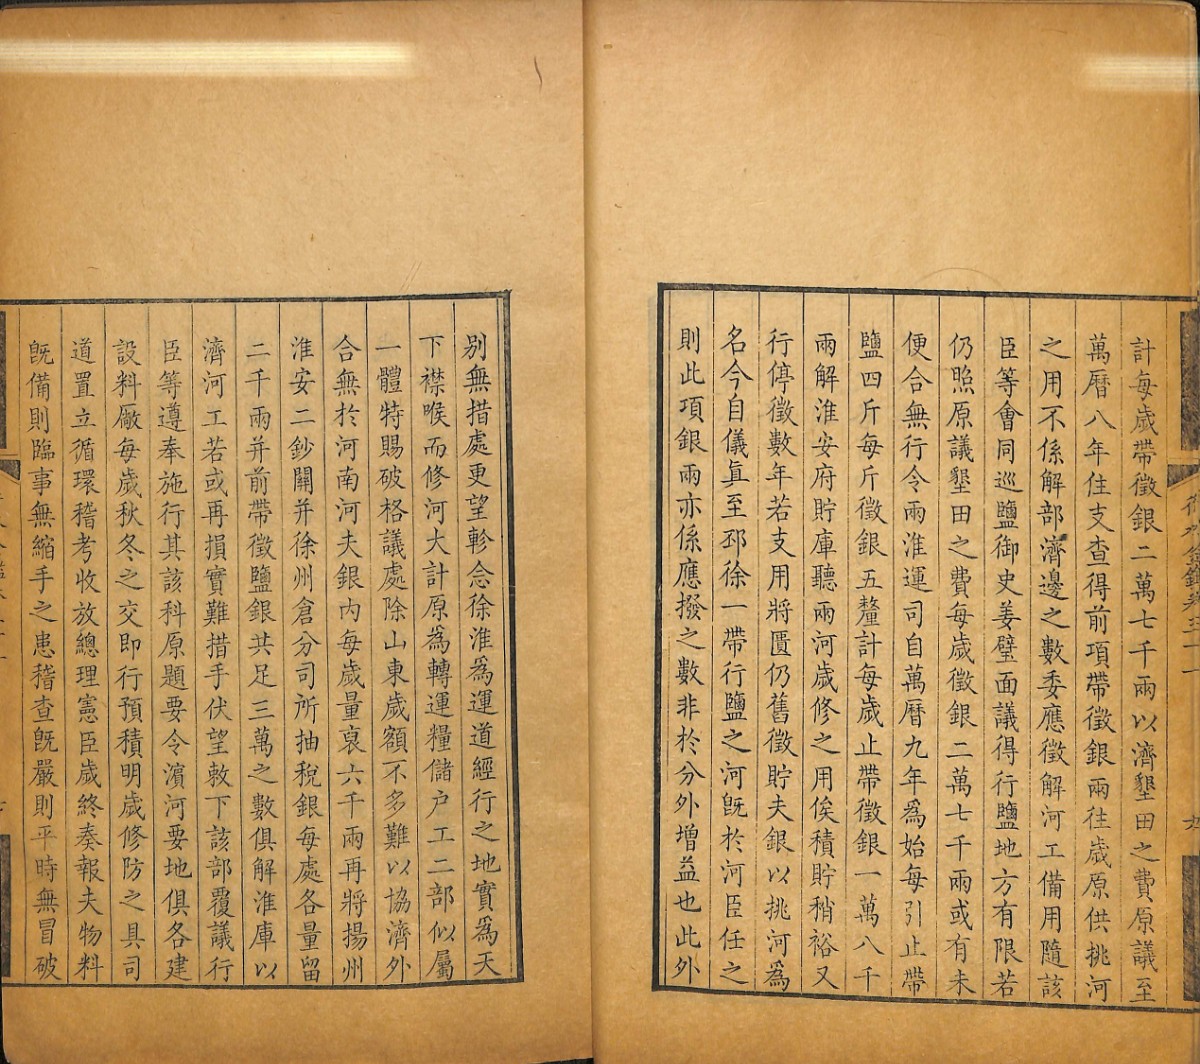 計每歲帶徵銀二萬七千兩以濟墾田之費原議至
萬曆八年住支查得前項帶徵銀兩往歲原供挑河
之用不係解部濟邊之數委應徵解河工備用隨該
臣等會同巡鹽御史姜璧面議得行鹽地方有限若
仍照原議墾田之費每歲徵銀二萬七千兩或有未
便合無行令兩淮運司自萬曆九年為始每引止帶
鹽四斤每斤徵銀五釐計每歲止帶徵銀一萬八千
兩解淮安府貯庫聽兩河歲修之用俟積貯稍裕又
行停徵數年若支用將匱仍舊徵貯夫銀以挑河為
名今自儀真至邳徐一帶行鹽之河旣於河臣任之
則此項銀兩亦係應撥之數非於分外增益也此外
別無措處更望軫念徐淮為運道經行之地實為天
下襟喉而修河大計原為轉運糧儲户工二部似屬
一體特賜破格議處除山東歲額不多難以協濟外
合無於河南河夫銀內每歲量裒六千兩再將揚州
淮安二鈔關并徐州倉分司所抽稅銀每處各量留
二千兩并前帶徵鹽銀共足三萬之數俱解淮庫以
濟河工若或再損實難措手伏望敕下該部覆議行
臣等遵奉施行其該科原題要令濱河要地俱各建
設料廠每歲秋冬之交即行預積明歲修防之具司
道置立循環稽考收放總理憲臣歲終奏報夫物料
旣備則臨事無縮手之患稽查旣嚴則平時無冒破